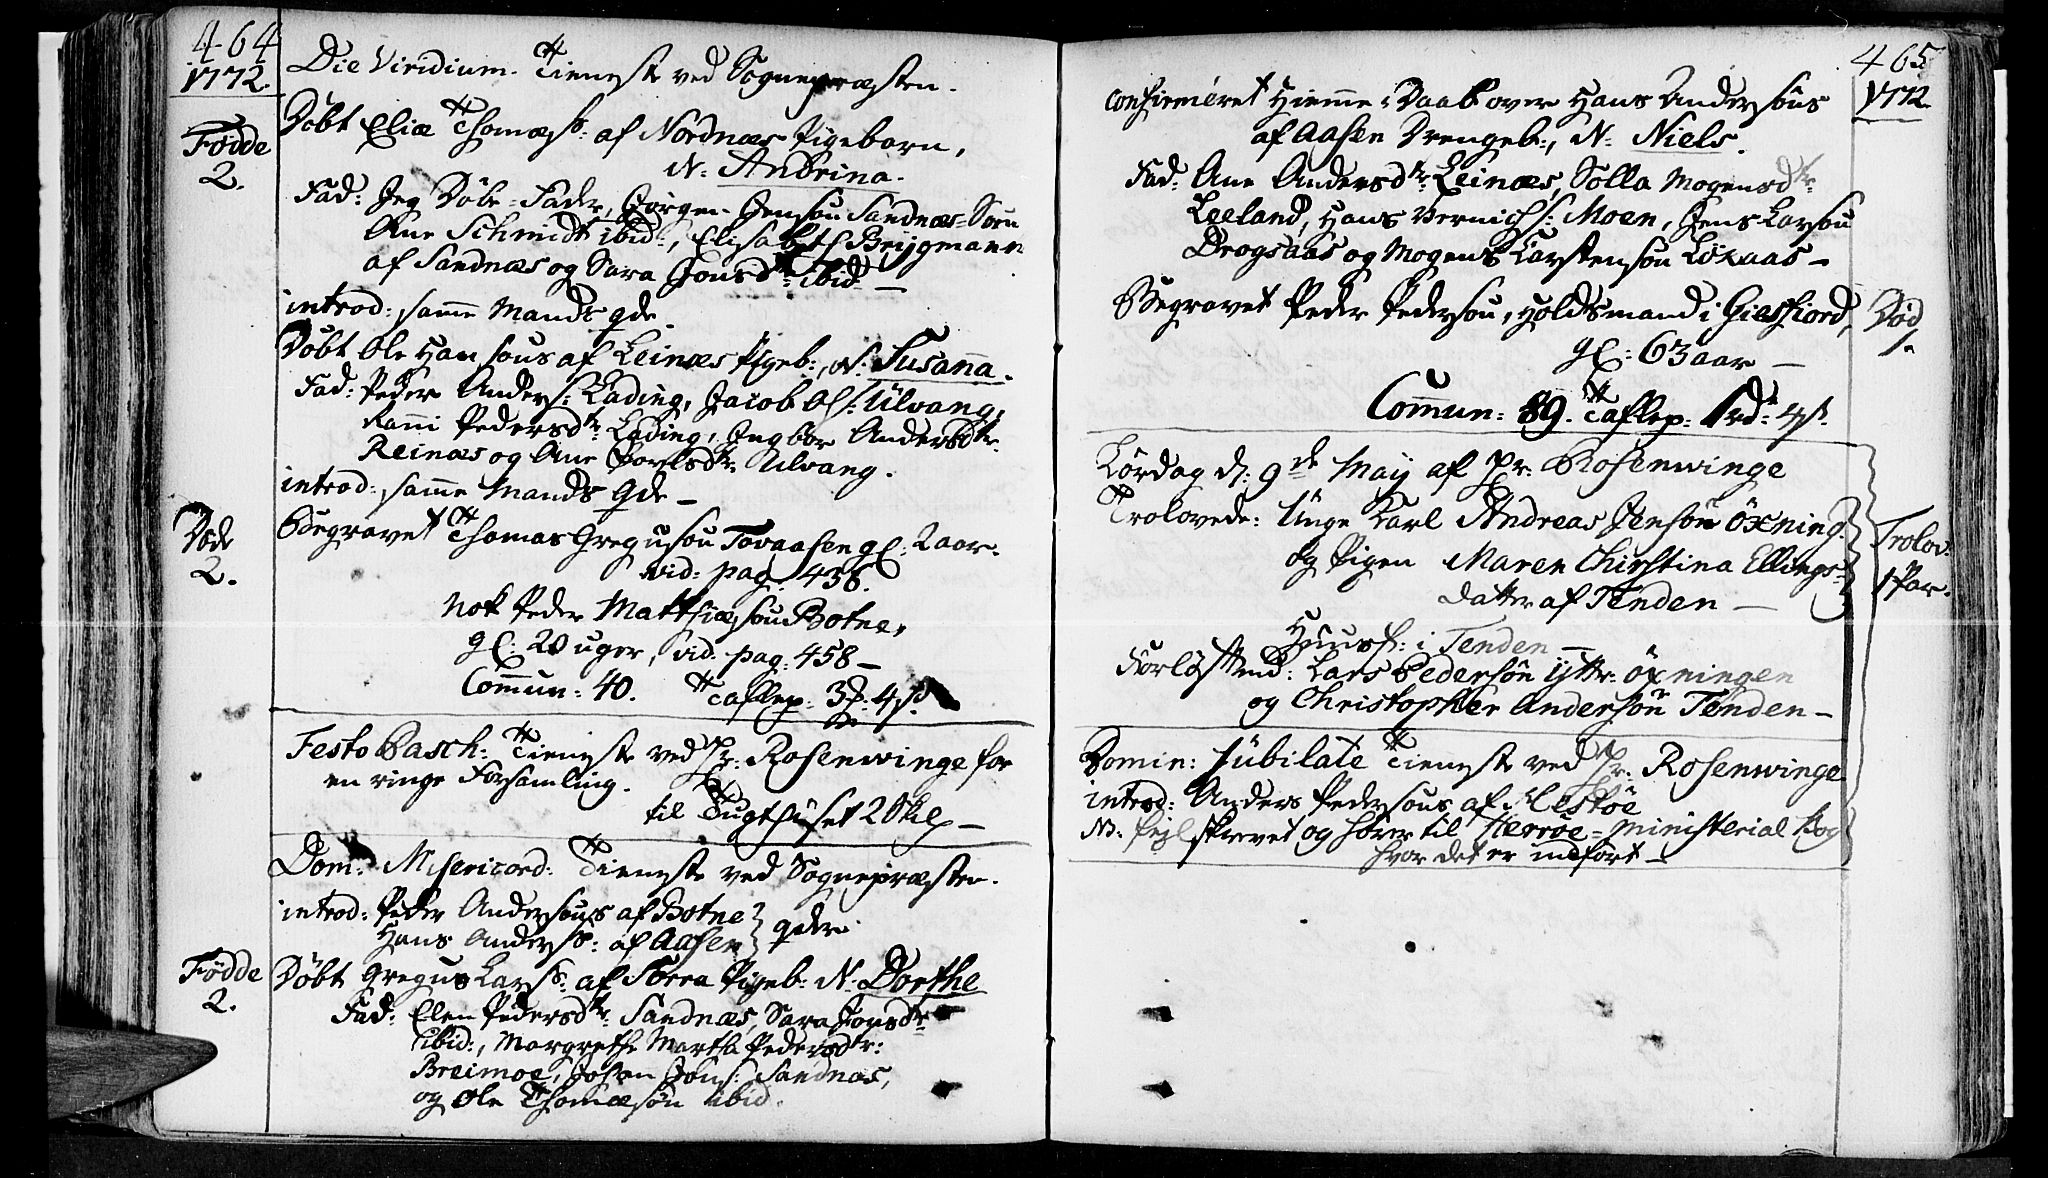 464
1772.
Die Viridium. Tieneste ved Sognepræsten.
Fødde
2.
Døbt Eliæ Thomæs: af Nordnæs Pigebarn,
N: Andrina.
Fad: Jeg Døbe-Fader, Jørgen Jensøn Sandnæs-Søen
Ane Schmidt ibid:, Elisabeth Brijgmann
af Sandnæs og Sara Jonsdtr ibid —
introd: samme Mands qde.
Døbt Ole Hansøns af Leinæs Pigeb:, N: Susanna.
Fad: Peder Anders: Lading, Jacob Ols: Ulvang,
Kanni Pedersdtr: Lading, Ingbor Andersdtr.
Reinæs og Ane Povlsdtr. Ulvang.
introd: samme Mands Qde —
Døde
2.
Begravet Thomas Gregusøn Tovaasen gl: 2 aar.
vid: pag. 456.
Nok Peder Matthiæsøn Botne,
gl: 20 uger, vid: pag: 458 —
Commun: 40. Taflep: 3 4s.
Festo Pasch: Tieneste ved Hr: Rosenwinge for
en ringe Forsamling.
til Tugthuset 2 Skil —
Dom: Misericord: Tieneste ved Sognepræsten.
introd: Peder Andersøns af Botne
Hans Anders: af Aasen } qder.
Fødde
2.
Døbt Gregus Lars: af Sørra Pigeb: N: Dorthe
Fad: Elen Pedersdtr: Sandnæs, Sara Jonsdtr
ibid:, Margrethe Martha Pedersdtr:
Breimoe, Johan Jons: Sandnæs,
og Ole Thomæsøn ibid.
465
1772.
Confirmeret Hiemme-Daab over Hans Andersøns
af Aasen Drengeb:, N: Niels.
Fad: Ane Andersdtr: Leinæs, Solla Mogensdtr:
Leeland, Hans Wernichs: Moen, Jens Larsøn
Drogsaas og Mogens Karstensøn Løkaas —
Begravet Peder Pedersøn, Holdsmand i Giesfiord,
gl: 63 aar —
Død
1.
Commun: 89. Taflep: 1rd: 4s.
Lørdag d: 9de Maij af Hr: Rosenwinge
Trolovede: Unge Karl Andreas Jensøn Öxning
og Pigen Maren Christina Ellings-
datter af Tenden —
Trolov:
1 Par.
Huusf: i Tenden —
Forløftmd: Lars Pedersøn ytter öxningen
og Christopher Andersøn Tenden —
Domin: Jubilate Tieneste ved Hr: Rosenwinge
introd: Anders Pedersøns af Meskøe
NB: fejl skrevet og hører til Herrøe-Ministerial Bog
hvor det er indført —